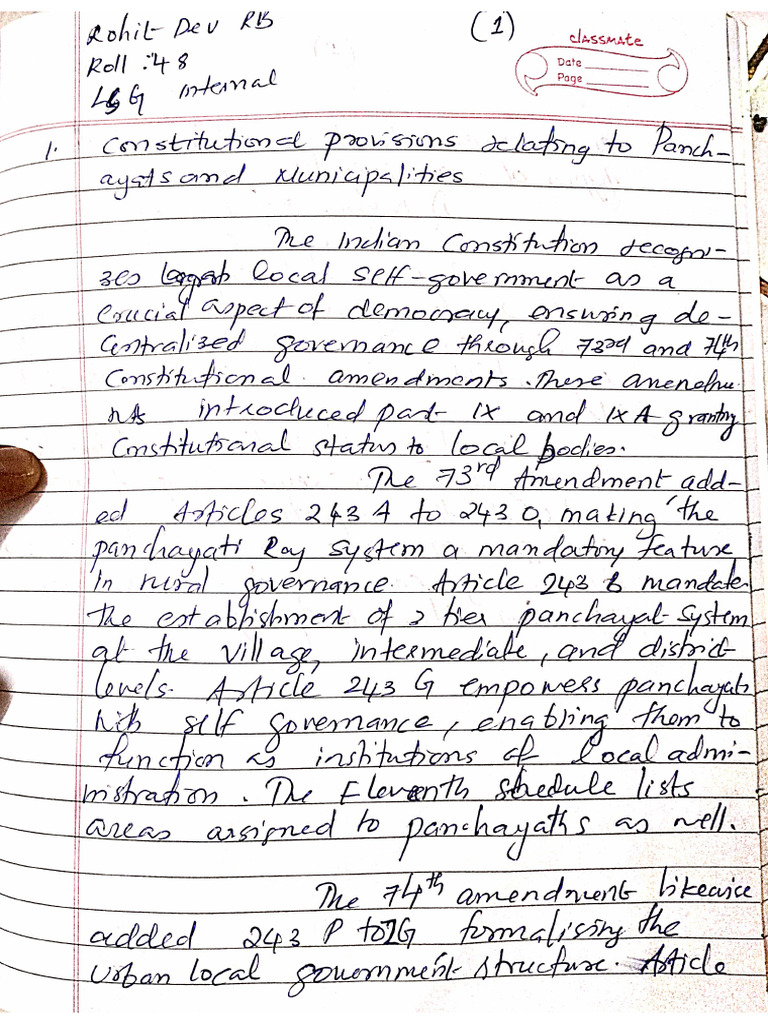 Rohit Dev RB
(1)
classmate
Roll : 48
Date
Page
LSG Internal
1. Constitutional provisions relating to Panch-
ayats and Municipalities
The Indian Constitution recogni-
zes local self-government as a
crucial aspect of democracy, ensuring de-
centralized governance through 73rd and 74th
Constitutional amendments. These amendme
nts introduced part IX and IXA granting
Constitutional status to local bodies.
The 73rd Amendment add-
ed Articles 243 A to 243 O, making the
panchayati Raj system a mandatory feature
in rural governance. Article 243 B mandates
the establishment of 3 tier panchayat system
at the village, intermediate, and district
levels. Article 243 G empowers panchayats
with self governance, enabling them to
function as institutions of local admi-
nistration. The Eleventh schedule lists
areas assigned to panchayaths as well.
The 74th amendment likewice
added 243 P to ZG formalising the
urban local government structure. Article